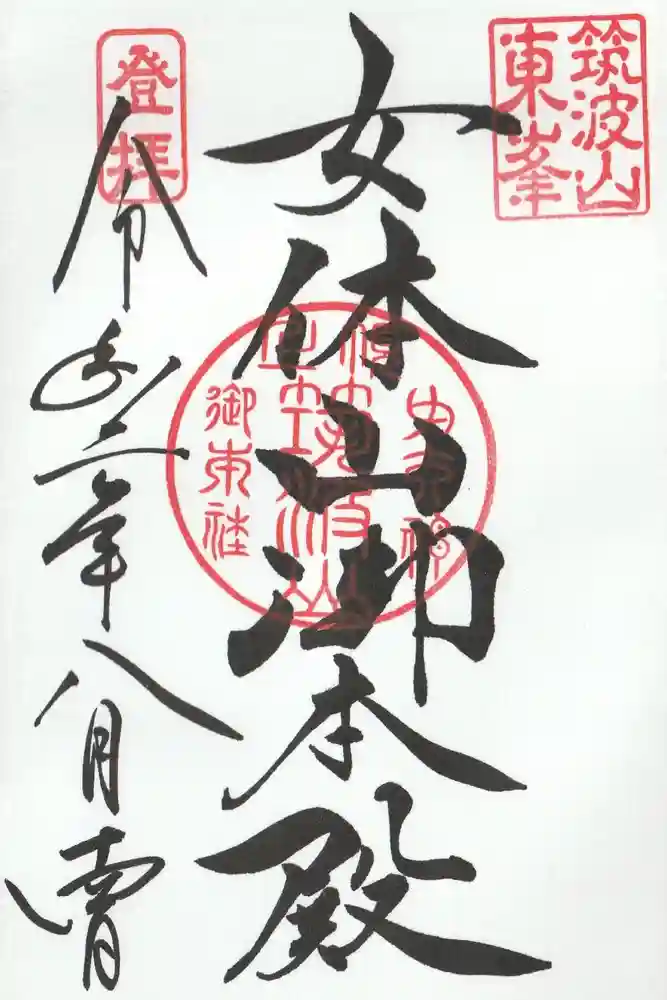 筑波山
東峯
女体山御本殿
登拝
令和二年八月